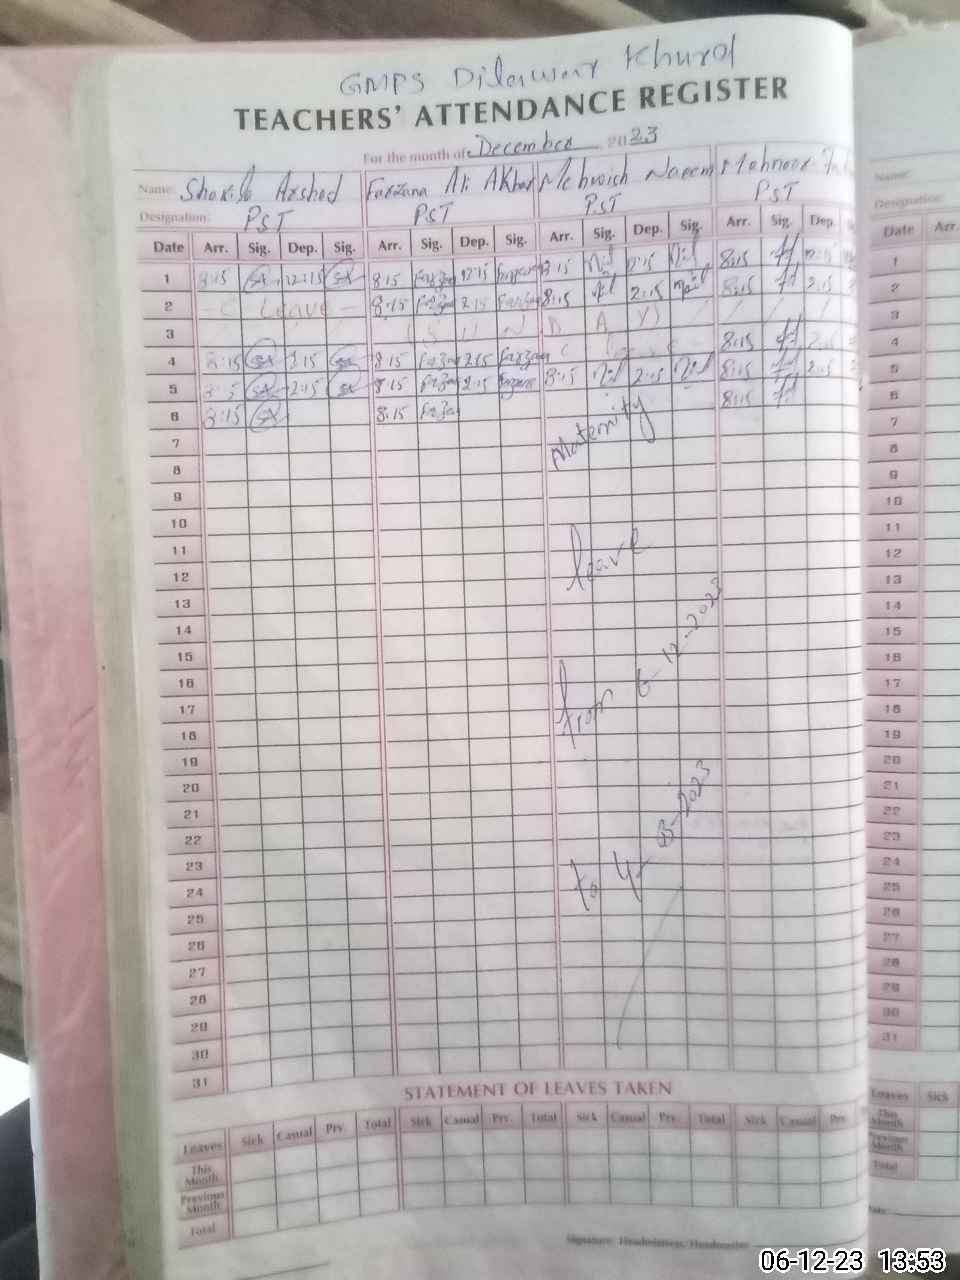 GMPS Dilawar Khurd
TEACHERS' ATTENDANCE REGISTER
For the month of December 2023
Name: Shakila Arshad Farzana Ali Akbar Mehwish Naeem Mahnoor
Name:
Designation: PST PST PST PST
Designation:
Date Arr. Sig. Dep. Sig. Arr. Sig. Dep. Sig. Arr. Sig. Dep. Sig. Arr. Sig. Dep.
Date Arr.
1 8:15 12:15 8:15 12:15 8:15 12:15 8:15 12:15 1
2 Leave 8:15 2:15 8:15 2:15 8:15 2:15 2
3 (SUNDAY) 3
4 8:15 2:15 8:15 2:15 8:15 4
5 8:15 2:15 8:15 2:15 8:15 2:15 8:15 2:15 5
6 8:15 8:15 8:15 6
Maternity
7 7
8 8
9 9
10 10
11 11
leave
12 12
13 13
14 14
15 15
16 16
from 6-12-2023
17 17
18 18
19 19
20 20
21 21
22 22
23 23
to 4-3-2023
24 24
25 25
26 26
27 27
28 28
29 29
30 30
31 31
STATEMENT OF LEAVES TAKEN
Leaves Sick Casual Prv. Total Sick Casual Prv. Total Sick Casual Prv. Total Sick Casual Prv.
Leaves Sick
This Month
This Month
Previous Month
Previous Month
Total
Total
Signature Headmistress/Headmaster
06-12-23 13:53